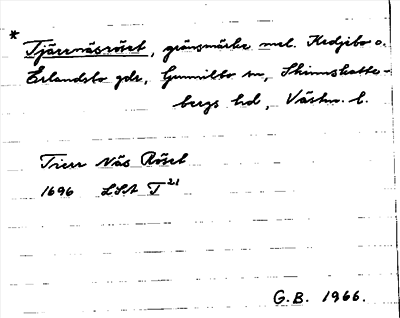 * Tjärrnäsröset, gränsmärke mel. Kedjebo o.
Erlandsbo gdr, Gunnilbo sn, Skinnskatte-
bergs hd, Västm. l.
Tierr Näs Röset
1696 LSA T 21
G.B. 1966.